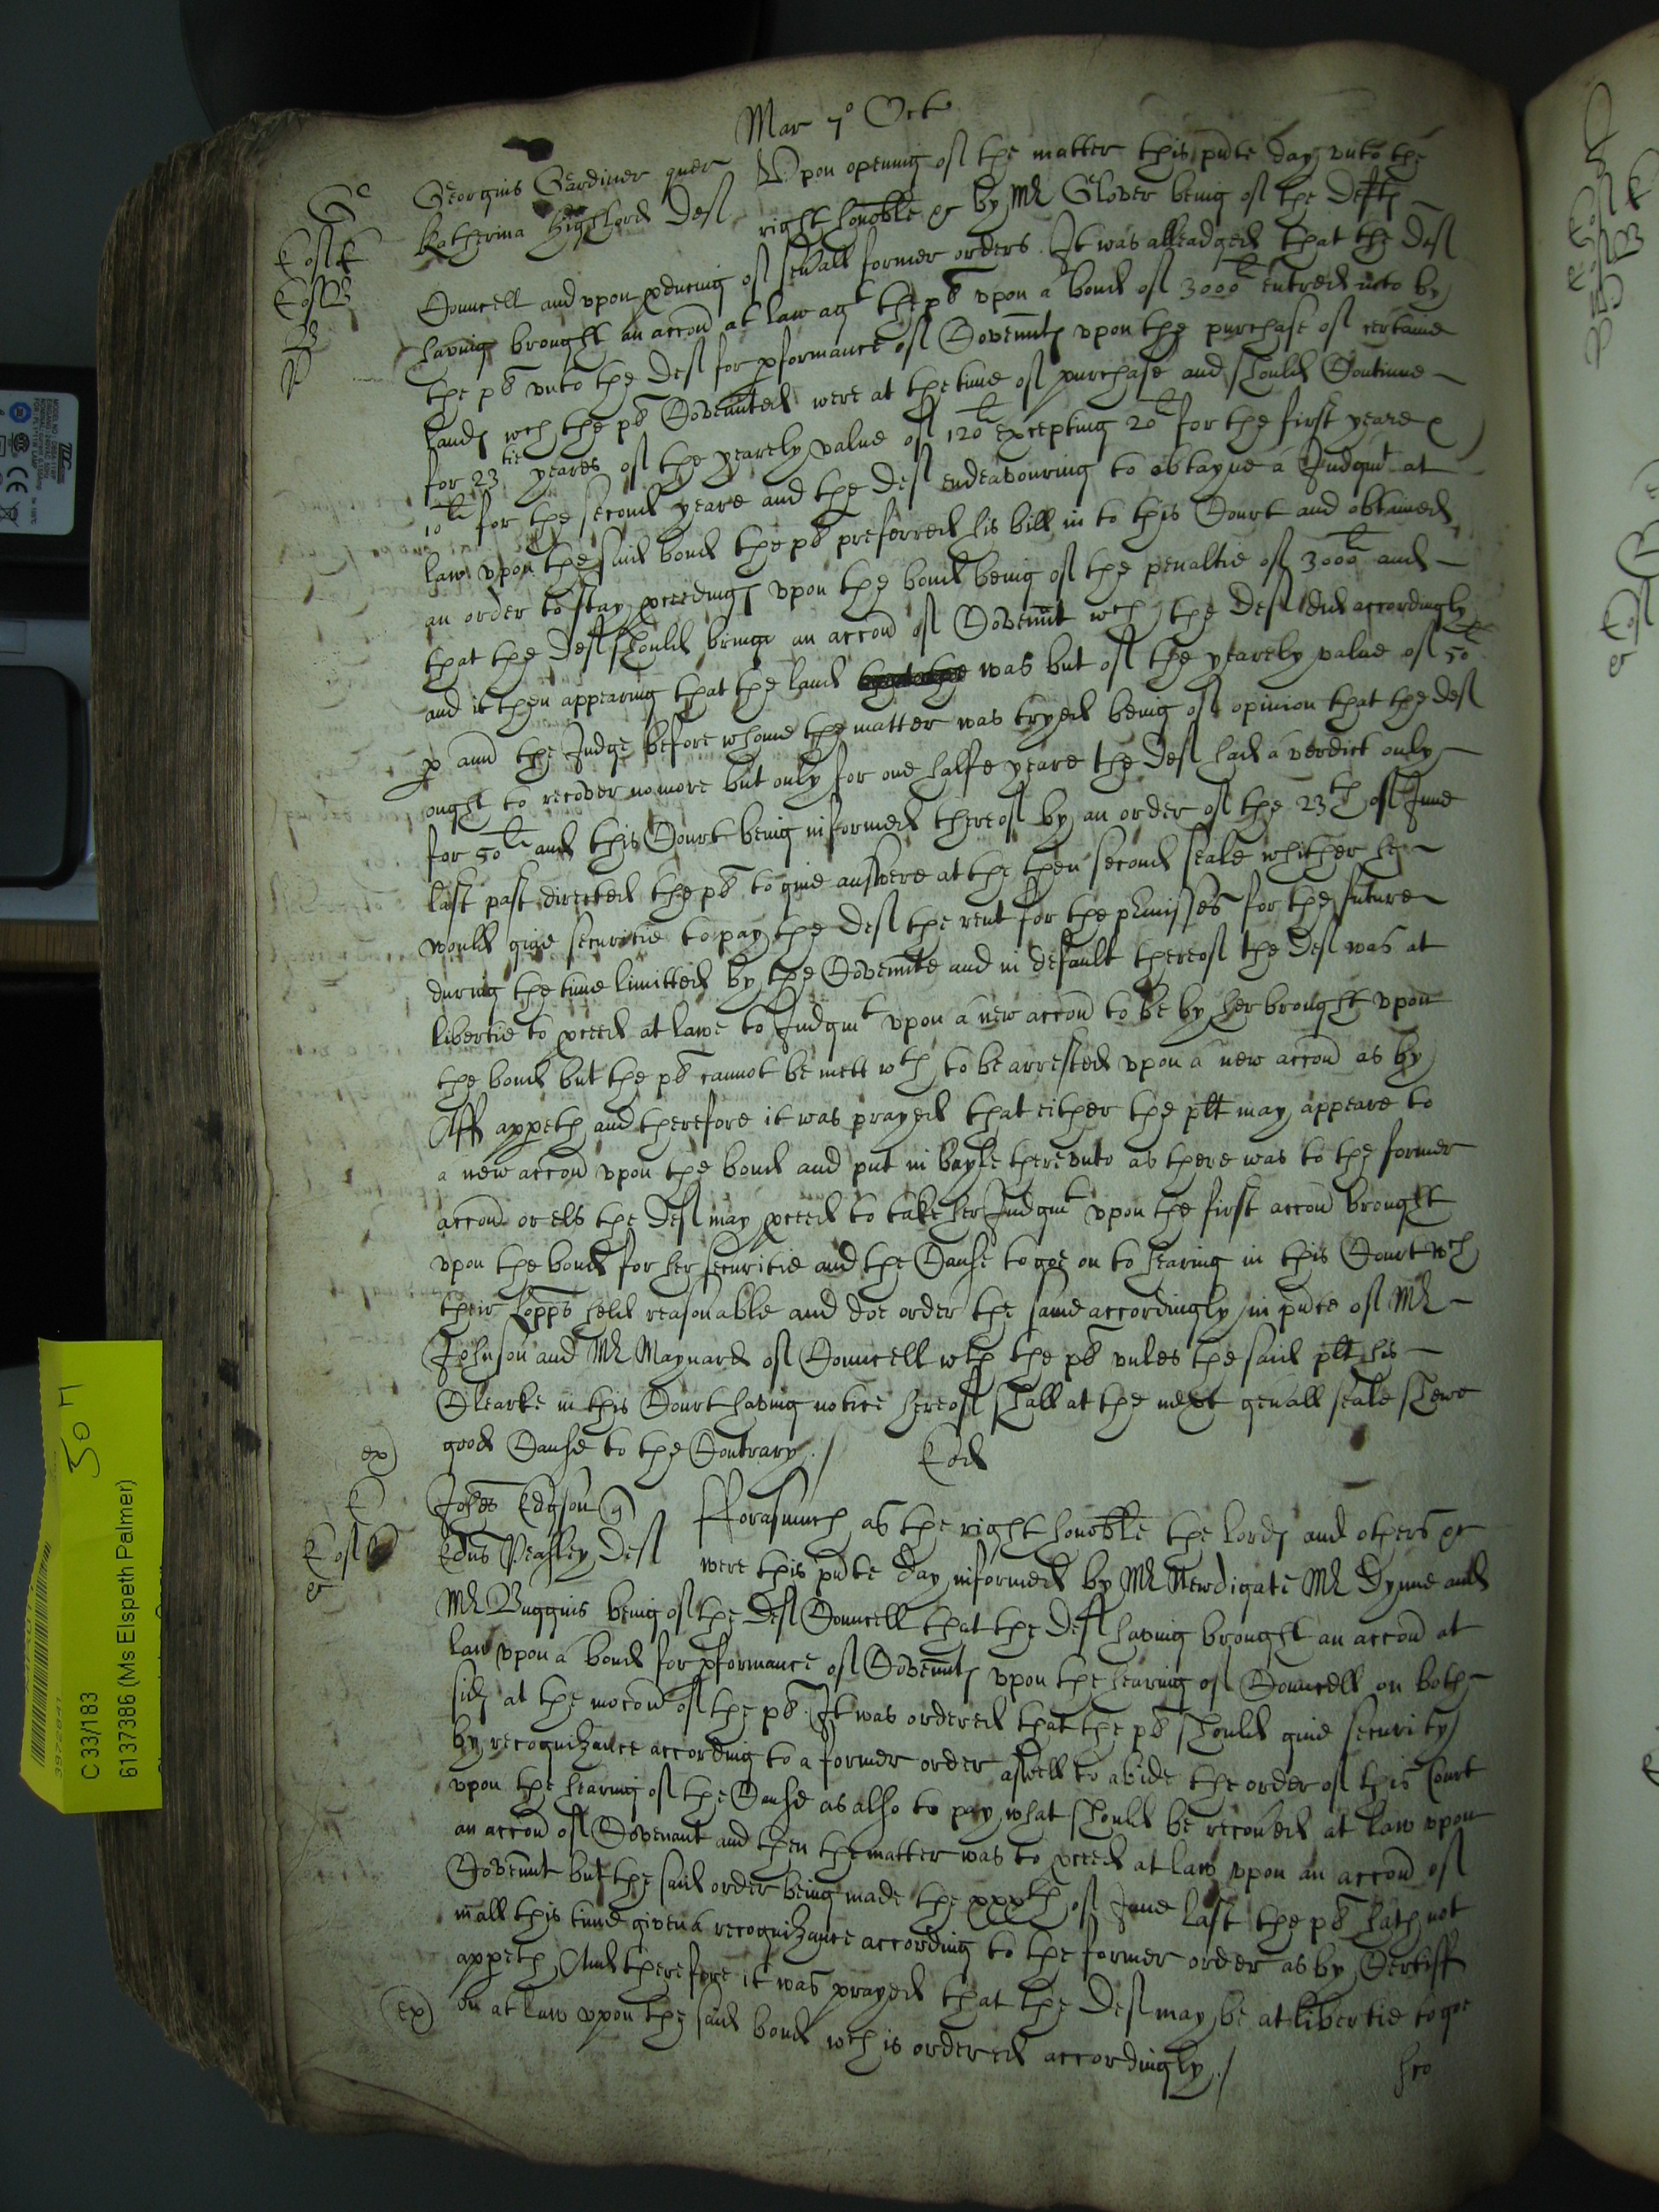 Mar 7º Octo
Georgius Gardiner quer
Katherina Highlord Def
Upon opening of the matter this pnte day unto the
right honoble &c by Mr Glover being of the Defts
Councell and upon pducing of sevall former orders It was alleadged that the Def
having brought an accon at law agt the pl upon a bond of 3000li entred into by
the pl unto the Def for pformance of Covennts upon the purchase of certaine
lands wch the pl Covennted were at the time of purchase and should Continue
for 23tie yeares of the yearely value of 120li excepting 20li for the first yeare &
10li for the second yeare and the Def endeavouring to obtayne a Judgmt at
law upon the said bond the pl preferred his bill in to this Court and obtained
an order to stay pceedings upon the bond being of the penaltie of 3000li and
that the Def should bringe an accon of Covennt wch the Def did accordingly
and it then appearing that the land was but of the yearely value of 50li
p ann the Judge before whome the matter was tryed being of opinion that the Def
ought to recover no more but only for one halfe yeare the Def had a verdict only
for 50li and this Court being informed thereof by an order of the 23th of June
last past directed the pl to give answere at the then second seale whither he
would give securitie to pay the Def the rent for the pmisses for the future
during the time limitted by the Covennte and in default thereof the Def was at
libertie to pceed at lawe to Judgmt upon a new accon to be by her brought upon
the bond but the pl cannot be mett wth to be arrested upon a new accon as by
Aff appeth and therefore it was prayed that either the plt may appeare to
a new accon upon the bond and put in bayle thereunto as there was to the former
accon or els the Def may pceed to take her Judgmt upon the first accon brought
upon the bond for her securitie and the Cause to goe on to hearing in this Court wch
their Lopps held reasonable and doe order the same accordingly in pnce of Mr
Johnson and Mr Maynard of Councell wth the pl unles the said plt his
Clearke in this Court having notice hereof shall at the next genall seale shewe
good Cause to the Contrary./
ex)
Johes Edgson q
Edus Peasley Def
Forasmuch as the right honoble the lords and others &c
were this pnte day informed by Mr Newdigate Mr Dynne and
Mr Buggins being of the Def Councell that the Def having brought an accon at
law upon a bond for pformance of Covennts upon the hearing of Councell on both
sids at the mocon of the pl It was ordered that the pl should give security
by recognizance according to a former order aswell to abide the order of this Court
upon the hearing of the Cause as also to pay what should be recoved at law upon
an accon of Covenant and then the matter was to pceed at law upon an accon of
Covennt but the said order being made the xxxth of June last the pl hath not
in all this time given a recognizance according to the former order as by Certiff
appeth And therefore it was prayed that the Def may be at libertie to goe
ex) on at law upon the said bond wch is ordered accordingly./
507
C 33/183
6137386 (Ms Elspeth Palmer)